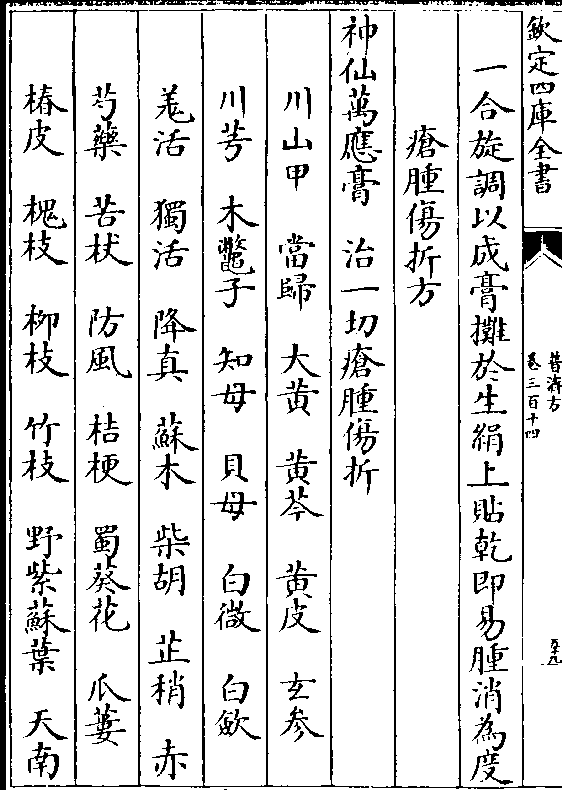 欽定四庫全書
普濟方
卷三百十四
一合旋調以成膏攤於生絹上貼乾即易腫消為度
瘡腫傷折方
神仙萬應膏　治一切瘡腫傷折
川山甲　當歸　大黃　黃芩　黃皮　玄參
川芎　木鼈子　知母　貝母　白薇　白歛
羗活　獨活　降真　蘇木　柴胡　芷稍　赤
芍藥　苦杖　防風　桔梗　蜀葵花　瓜蔞
椿皮　槐枝　柳枝　竹枝　野紫蘇葉　天南